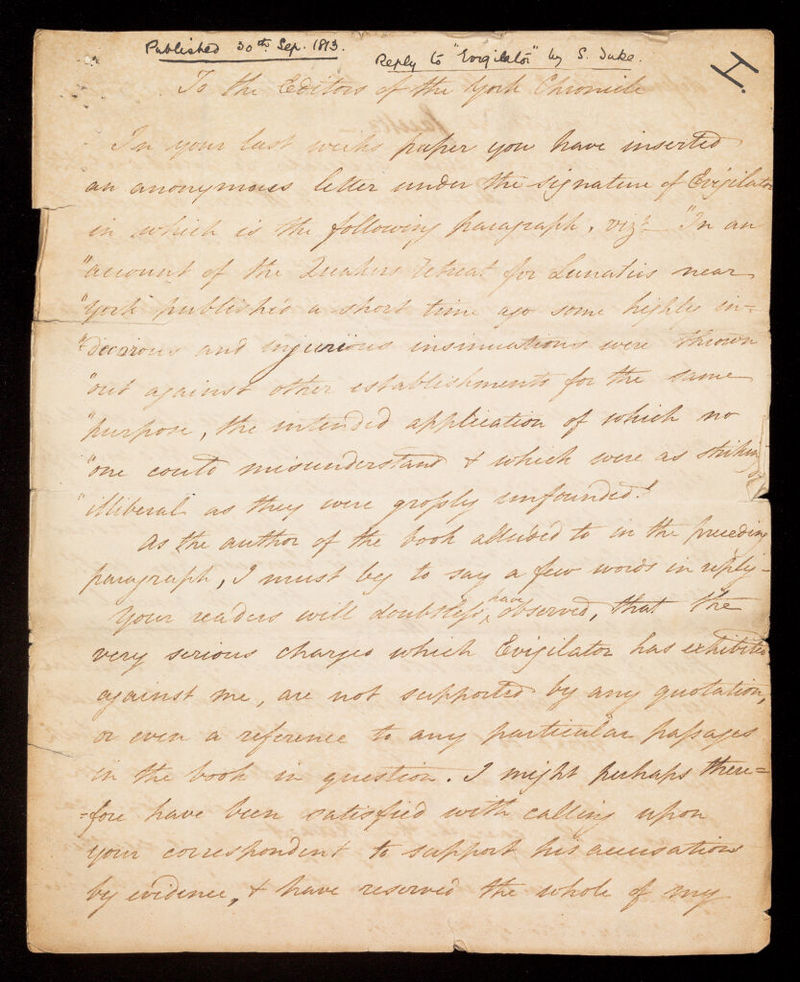 Published 30th Sep. 1813.
Reply to "Evigilator" by S. Tuke.
H.
To the Editors of the York Chronicle
In your last weeks paper you have inserted
an anonymous letter under the signature of Evigilator
in which is the following paragraph, vizt "In an
"account of the Quakers Retreat for Lunatics near
"York published a short time ago some highly in=
"decorous and injurious insinuations were thrown
"out against other establishments for the same
"purpose, the intended application of which no
"one could misunderstand & which were as strikingly
"illiberal as they were grossly unfounded."
As the author of the book alluded to in the preceding
paragraph, I must beg to say a few words in reply –
Your readers will doubtless have observed, that the
very serious charges which Evigilator has exhibited
against me, are not supported by any quotation,
or even a reference to any particular passages
in the book in question. I might perhaps there=
=fore have been satisfied with calling upon
your correspondent to support his accusations
by evidence, & have reserved the whole of my